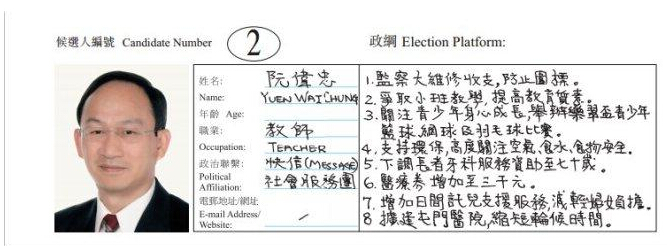 候選人編號 Candidate Number 2
政綱 Election Platform:
姓名: 阮偉忠
Name: YUEN WAI CHUNG
年齡 Age:
職業: 教師
Occupation: TEACHER
政治聯繫: 快信(MESSAGE)
Political 社會服務團
Affiliation:
電郵地址/網址
E-mail Address/ /
Website:
1. 監察大維修收支,防止圍標。
2. 爭取小班教學,提高教育質素。
3. 關注青少年身心成長,舉辦樂習盃青少年
籃球網球區羽毛球比賽。
4. 支持環保,高度關注空氣,食水,食物安全。
5. 下調長者牙科服務資助至七十歲。
6. 醫療券增加至三千元。
7. 增加日間託兒支援服務,減輕婦女負擔。
8 擴建屯門醫院,縮短輪候時間。